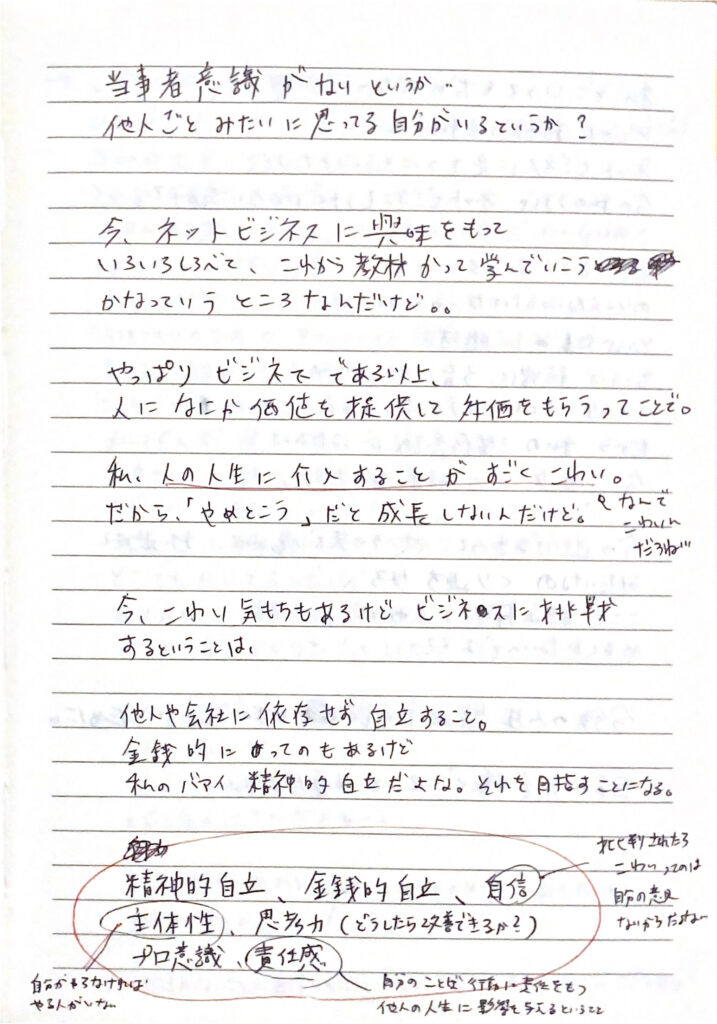 当事者意識がないというか
他人ごとみたいに思ってる自分がいるというか?
今、ネットビジネスに興味をもって
いろいろしらべて、これから教材かって学んでいこう
かなっていうところなんだけど。。
やっぱりビジネスである以上、
人になにか価値を提供して対価をもらうってことで。
私、人の人生に介入することがすごくこわい。
だから、「やめとこう」だと成長しないんだけど。
なんで
こわいん
だろね
今、こわい気持ちもあるけどビジネスに挑戦
するということは、
他人や会社に依存せず自立すること。
金銭的にってのもあるけど
私のバアイ精神的自立だよな。それを目指すことになる。
精神的自立、金銭的自立、自信
主体性、思考力(どうしたら改善できるか?)
プロ意識、責任感
批判されたら
こわいってのは
自分の意見
ないからだよな
自分がやらなければ
やる人がいない
自分のことば行動に責任をもつ
他人の人生に影響を与えるということ